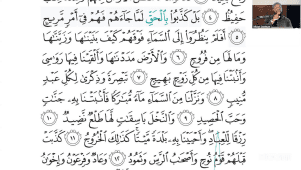 حَفِيظٌ ۝٤ بَلْ كَذَّبُوا۟ بِٱلْحَقِّ لَمَّا جَآءَهُمْ فَهُمْ فِىٓ أَمْرٍ مَّرِيجٍ
۝٥ أَفَلَمْ يَنظُرُوٓا۟ إِلَى ٱلسَّمَآءِ فَوْقَهُمْ كَيْفَ بَنَيْنَٰهَا وَزَيَّنَّٰهَا
وَمَا لَهَا مِن فُرُوجٍ ۝٦ وَٱلْأَرْضَ مَدَدْنَٰهَا وَأَلْقَيْنَا فِيهَا رَوَٰسِىَ
وَأَنۢبَتْنَا فِيهَا مِن كُلِّ زَوْجٍۭ بَهِيجٍ ۝٧ تَبْصِرَةً وَذِكْرَىٰ لِكُلِّ عَبْدٍ
مُّنِيبٍ ۝٨ وَنَزَّلْنَا مِنَ ٱلسَّمَآءِ مَآءً مُّبَٰرَكًا فَأَنۢبَتْنَا بِهِۦ جَنَّٰتٍ
وَحَبَّ ٱلْحَصِيدِ ۝٩ وَٱلنَّخْلَ بَاسِقَٰتٍ لَّهَا طَلْعٌ نَّضِيدٌ ۝١٠
رِّزْقًا لِّلْعِبَادِ وَأَحْيَيْنَا بِهِۦ بَلْدَةً مَّيْتًا كَذَٰلِكَ ٱلْخُرُوجُ ۝١١ كَذَّبَتْ
قَبْلَهُمْ قَوْمُ نُوحٍ وَأَصْحَٰبُ ٱلرَّسِّ وَثَمُودُ ۝١٢ وَعَادٌ وَفِرْعَوْنُ وَإِخْوَٰنُ